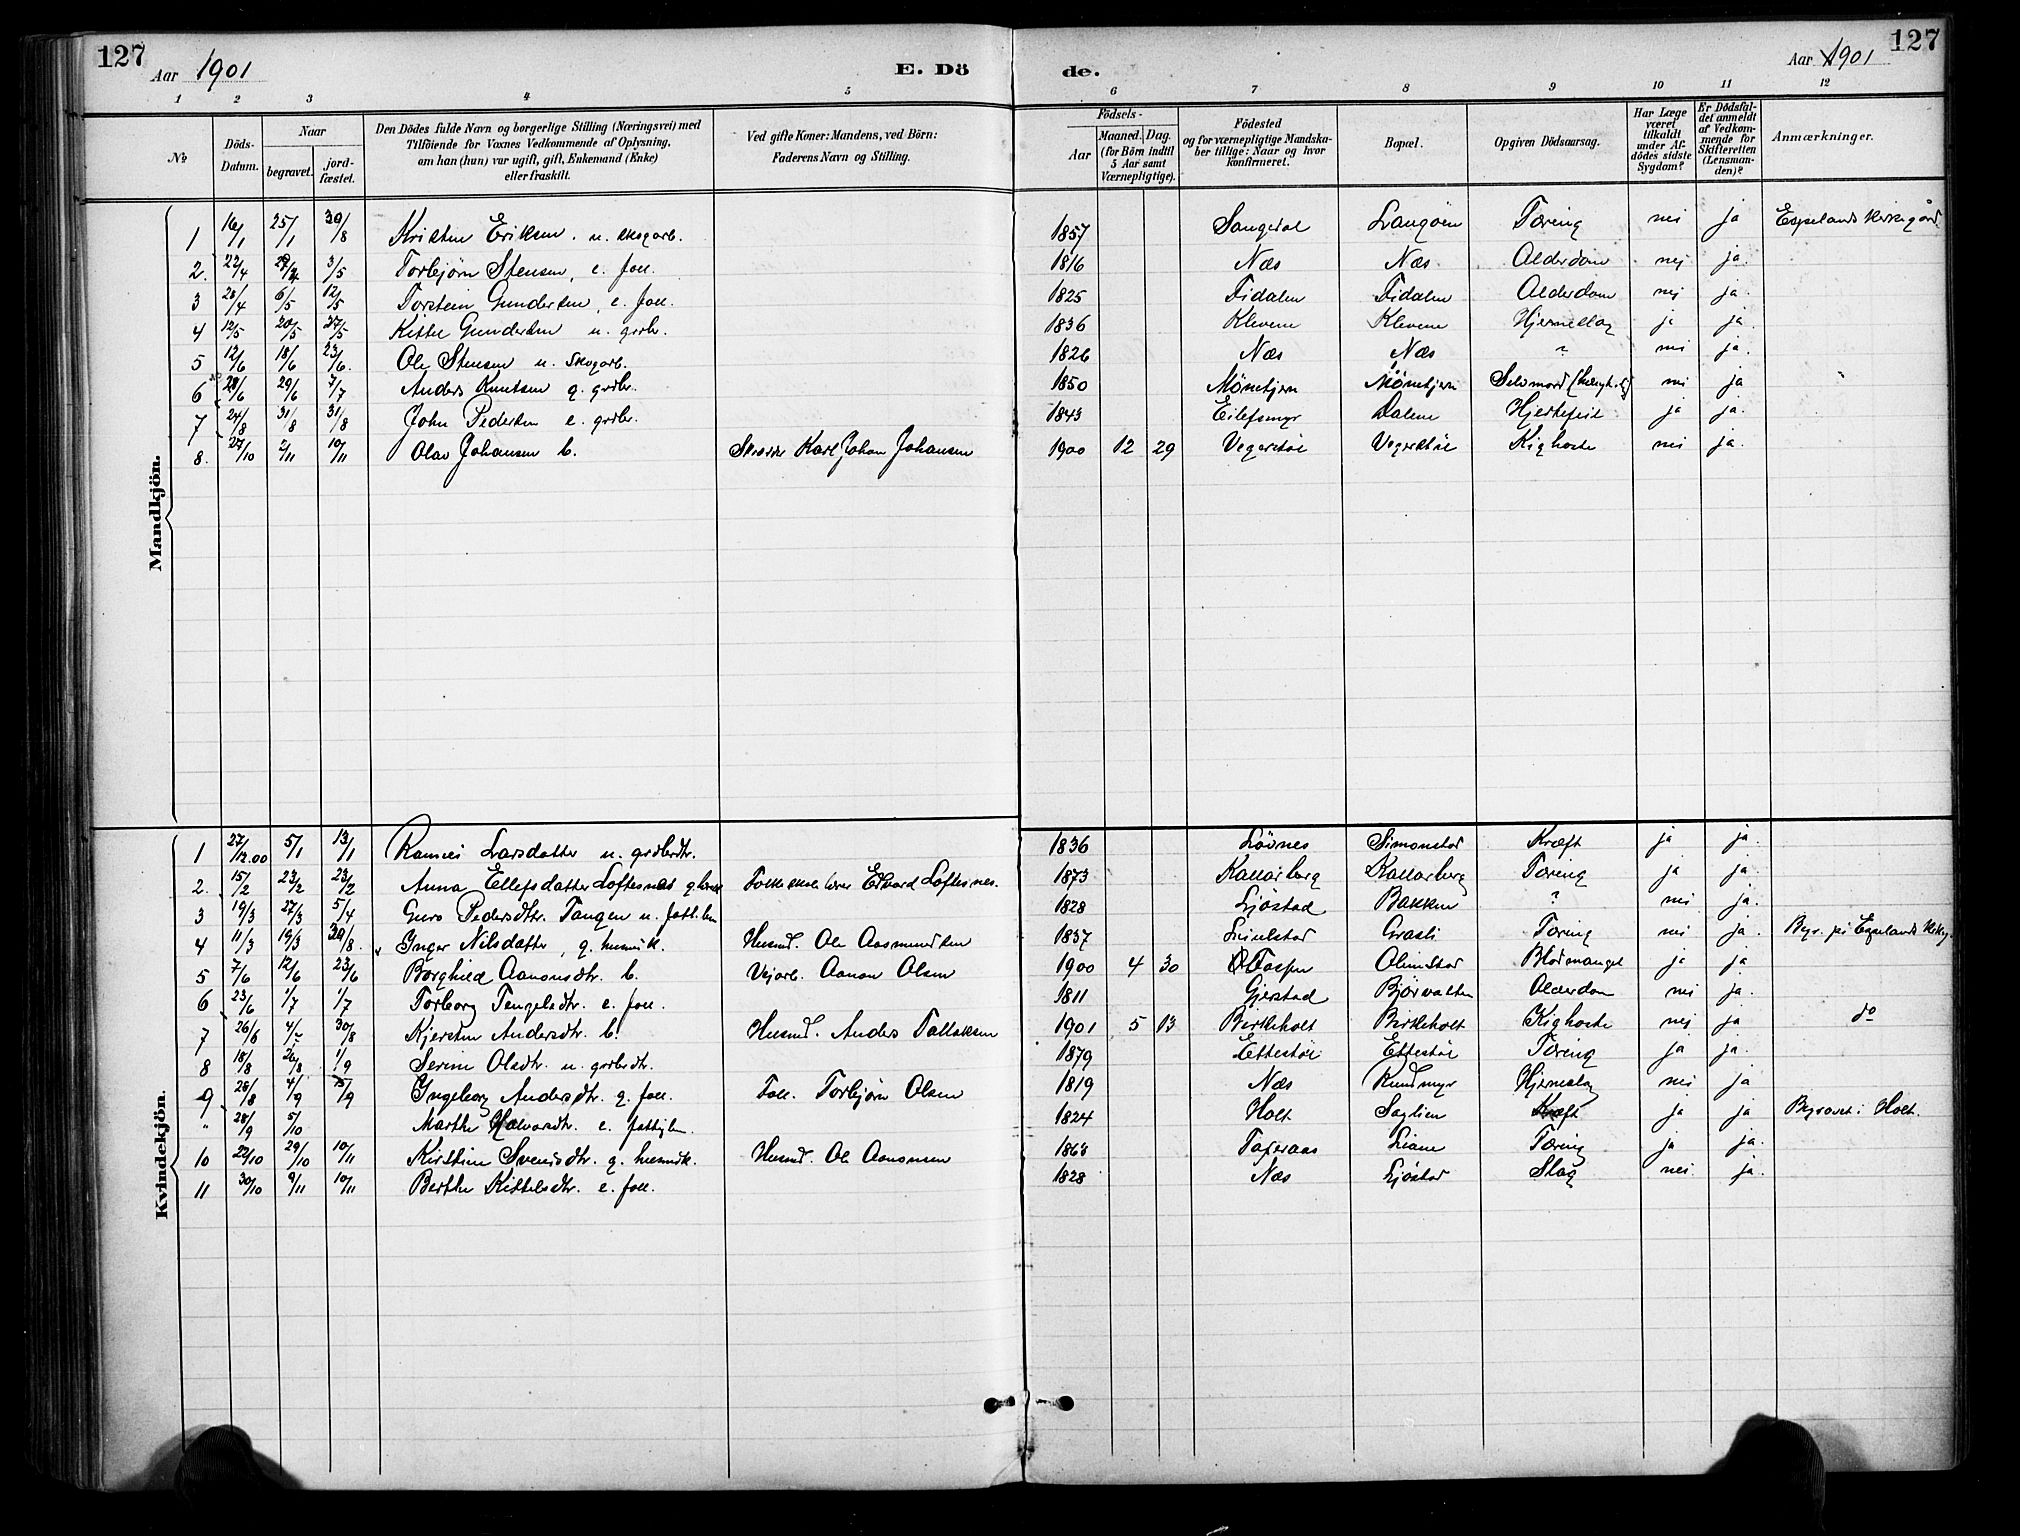 127
Aar 1901
E. Dö
de.
Aar 1901
127
1 2 3 4 5 6 7 8 9 10 11 12
№
Döds-Datum.
Naar
begravet.
jord-fæstet.
Den Dödes fulde Navn og borgerlige Stilling (Næringsvei) med
Tilföiende for Voxnes Vedkommende af Oplysning,
om han (hun) var ugift, gift, Enkemand (Enke)
eller fraskilt.
Ved gifte Koner: Mandens, ved Börn:
Faderens Navn og Stilling.
Födsels-
Aar
Maaned. Dag.
(for Börn indtil
5 Aar samt
Værnepligtige).
Födested
og for værnepligtige Mandska-
ber tillige: Naar og hvor
konfirmeret.
Bopæl.
Opgiven Dödsaarsag.
Har Læge
været
tilkaldt
under Af-
dödes sidste
Sygdom?
Er Dödsfal-
det anmeldt
af Vedkom-
mende for
Skifteretten
(Lensman-
den)?
Anmærkninger.
Mandkjön.
1 16/1 25/1 30/8 Kristen Eriksen. u. skogarb. 1857 Sangedal Langøen Tæring nei ja Espelands Kirkegård
2. 22/4 3/5 Torbjørn Stensen, e. foll. 1816 Næs Næs. Alderdom nej ja.
3 28/4 6/5 12/5 Torstein Gundersen, e. foll. 1825 Fidalen Fidalen Alderdom nej ja.
4 12/5 20/5 27/5 Kittel Gundersen u. grdbr. 1836 Klevene Klevene Hjerneslag ja ja.
5 12/6 18/6 23/6. Ole Stensen u. skogarb. 1826 Næs Næs ? nei ja.
6 23/6 29/6 7/7 Anders Knutsen g. grdbr. 1850 Mönetjern Mönetjern Selvmord nei ja
7 24/8 31/8 31/8 John Pedersen e. grdbr. 1843 Eilefsmyr Dalene Hjertefeil ja ja.
8. 27/10 2/11 10/11 Olav Johansen b. Skrædder Karl Johan Johansen 1900 12 29 Vegarstöl Vegarstöl Kighoste nei ja.
Kvindekjön.
1 27/12.00 5/1 13/1 Ramvei Larsdatter u. grdbrdtr. 1836 Lövnes Simonstad Kræft ja ja.
2. 15/2 23/2 23/2 Anna Ellefsdatter Loftesnæs g. Folkeskolelærer Edvard Loftesnes. 1873 Kallarberg Kallarberg Tæring ja ja.
3 19/3 27/3 5/4 Guro Pedersdtr. Tangen u. 1828 Ljöstad Bakken ? nei ja.
4 11/3 19/3 30/8. Inger Nilsdatter, g. husmk. Husmd. Ole Aasmundsen 1837 Grasli Tæring nei ja. Begr. på Espelands Kirkeg.
5 7/6 12/6 23/6 Borghild Aanonsdtr. b. Vejarb. Aanon Olsen 1900 4 30 Olimstad Blodmangel ja ja
6 23/6 1/7 1/7 Torborg Tengelsdtr. e. foll. 1811 Gjerstad Alderdom nei ja.
7 26/6 4/7 30/8 Kjersten Andersdtr. b. Husmd. Anders Tallaksen 1901 5 13 Birkeholt Birkeholt Kighoste nej ja do
8 18/8 26/8 1/9 Serine Olsdtr. u. grdbrdtr. 1879 Ettestöl Ettestöl Tæring ja ja.
9 28/8 4/9 15/9 Ingeborg Andersdtr. g. foll. Foll. Torbjørn Olsen 1819 Næs Rundmyr Hjerneslag nei ja
" 28/9 5/10 Marthe Halvorsdtr. e. 1824 Holt Saglien Kræft ja ja Begravet i Holt.
10 22/10 29/10 10/11 Kirstine Svensdtr. g. husmk. Husmd. Ole Aanonsen 1868 Taxeraas Liane Tæring ja ja.
11 30/10 9/11 10/11 Berthe Kittelsdtr. e. foll. 1828 Næs Ljöstad Slag nei ja.